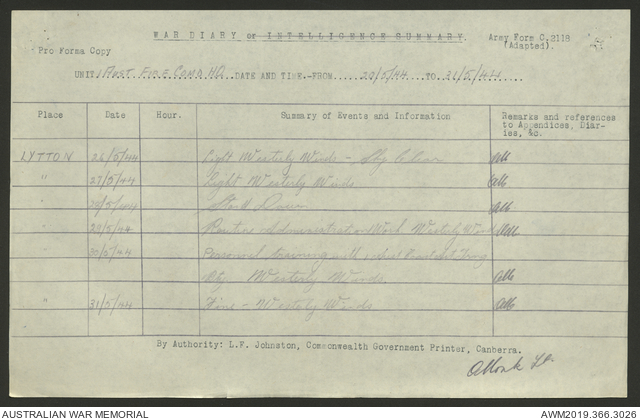 WAR DIARY or INTELLIGENCE SUMMARY. Army Form C.2118
(Adapted).
Pro Forma Copy
UNIT: Fire Comd HQ DATE AND TIME.-FROM.....20/5/44....TO 31/5/44....
Place Date Hour. Summary of Events and Information Remarks and references to Appendices, Diaries, &c.
LYTTON 26/5/44 Light Westerly Winds - Sky Clear
" 27/5/44 Light Westerly Winds
" /5/44
" 29/5/44 Routine Administration Work Westerly Winds
" 30/5/44 Personnel training with
Westerly Winds
" 31/5/44 Fine - Westerly Winds
By Authority: L.F. Johnston, Commonwealth Government Printer, Canberra.
AUSTRALIAN WAR MEMORIAL AWM2019.366.3026